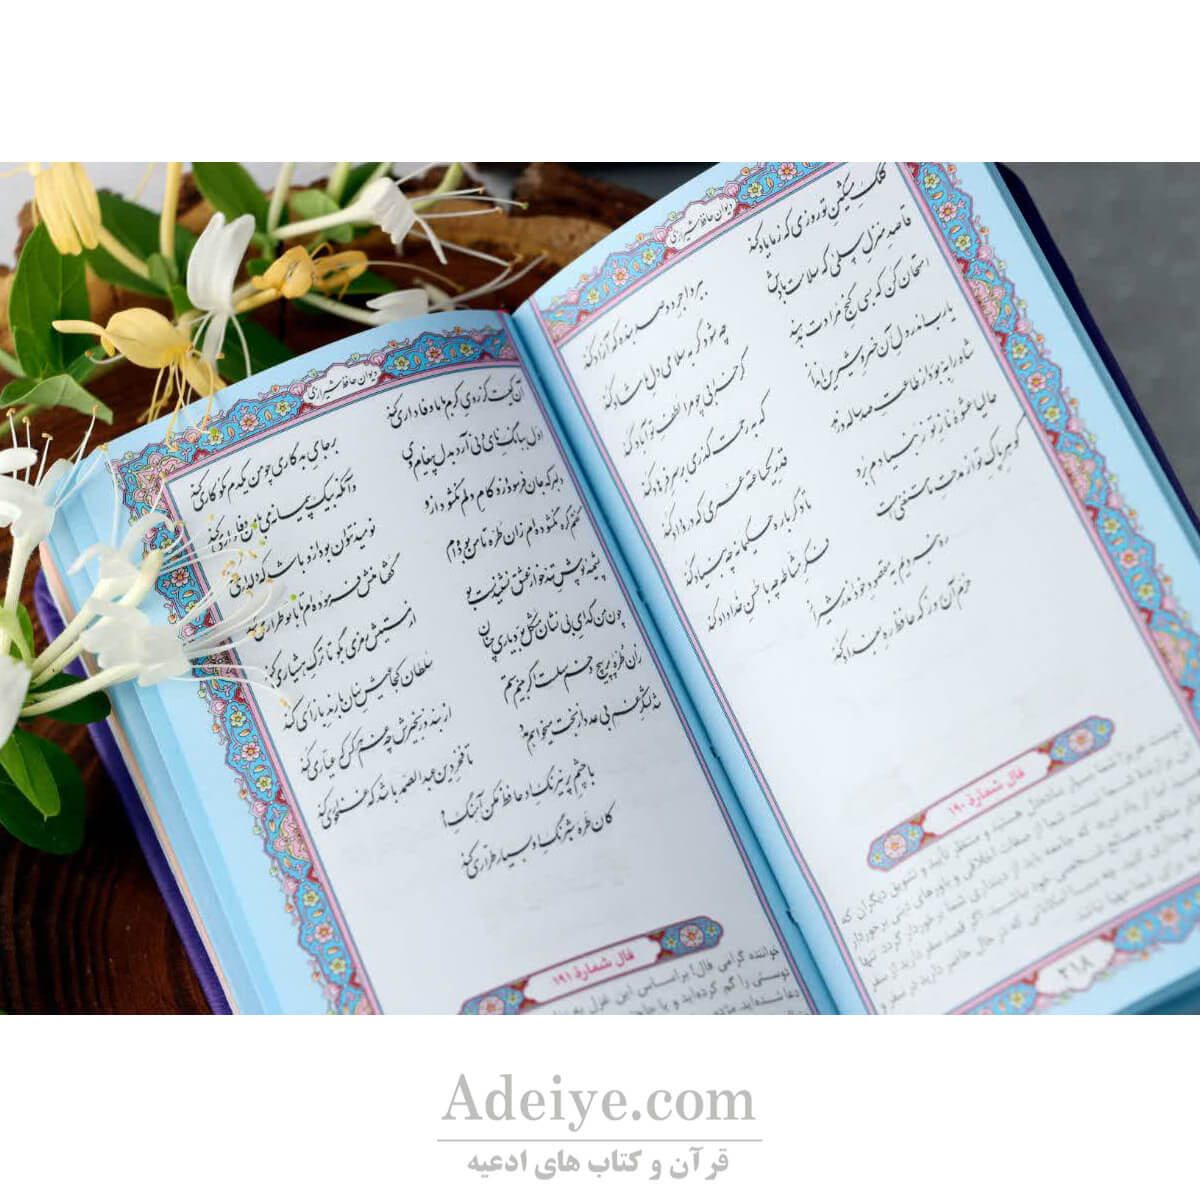 دیوان حافظ شیرازی
کلک مشکین تو روزی که ز ما یاد کند
ببرد اجر دو صد بنده که آزاد کند
قاصد منزل سلمی که سلامت بادش
چه شود گر به سلامی دل ما شاد کند
امتحان کن که بسی گنج مرادت بدهند
گر خرابی چو مرا لطف تو آباد کند
یارب اندر دل آن خسرو شیرین انداز
که به رحمت گذری بر سر فرهاد کند
شاه را به بود از طاعت صد ساله و زهد
قدر یکساعته عمری که در او داد کند
حالیا عشوه ناز تو ز بنیادم برد
تا دگرباره حکیمانه چه بنیاد کند
گوهر پاک تو از مدحت ما مستغنی است
فکر مشاطه چه با حسن خداداد کند
ره نبردیم به مقصود خود اندر شیراز
خرم آن روز که حافظ ره بغداد کند
فال شماره ۱۹۰
شما بسیار ساده‌دل هستید و منتظر تایید و تشویق دیگران که
۲۱۸
دیوان حافظ شیرازی
آن کیست کز روی کرم با ما وفاداری کند
بر جای بدکاری چو من یکدم نکوکاری کند
اول به بانگ نای و نی آرد به دل پیغام وی
وانگه به یک پیمانه می با من وفاداری کند
دلبر که جان فرسود از او کام دلم نگشود از او
نومید نتوان بود از او باشد که دلداری کند
گفتم گره نگشوده‌ام زان طره تا من بوده‌ام
گفتا منش فرموده‌ام تا با تو طراری کند
پشمینه پوش تندخو از عشق نشنیدست بو
از مستیش رمزی بگو تا ترک هشیاری کند
چون من گدای بی نشان مشکل بود یاری چنان
سلطان کجا عیش نهان با رند بازاری کند
زان طره پر پیچ و خم سهل است اگر بینم ستم
از بند و زنجیرش چه غم هر کس که عیاری کند
شد لشکر غم بی عدد از بخت میخواهم مدد
تا فخر دین عبدالصمد باشد که غمخواری کند
با چشم پر نیرنگ او حافظ مکن آهنگ او
کان طره شبرنگ او بسیار طراری کند
فال شماره ۱۹۱
خواننده گرامی فال! براساس این غزل
دوستی را گم کرده‌اید و یا
Adeiye.com
قرآن و کتاب های ادعیه